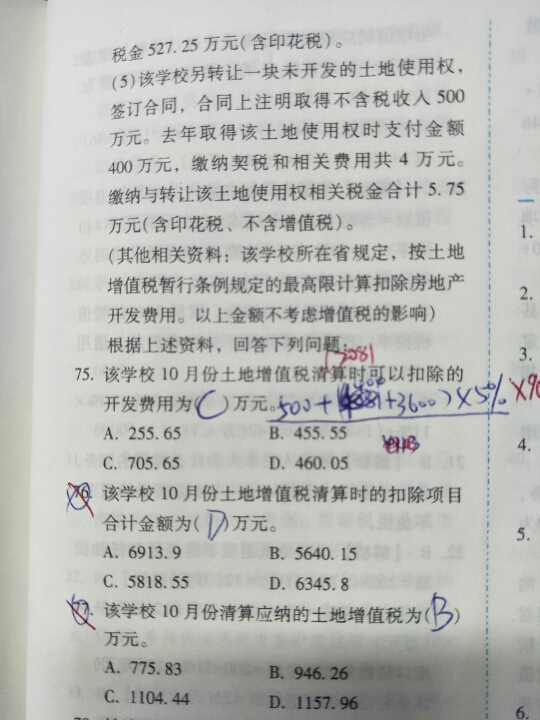 税金 527.25 万元(含印花税)。
(5)该学校另转让一块未开发的土地使用权,
签订合同，合同上注明取得不含税收入 500
万元。去年取得该土地使用权时支付金额
400 万元，缴纳契税和相关费用共 4 万元。
缴纳与转让该土地使用权相关税金合计 5.75
万元(含印花税、不含增值税)。
(其他相关资料：该学校所在省规定，按土地
增值税暂行条例规定的最高限计算扣除房地产
开发费用。以上金额不考虑增值税的影响)
根据上述资料，回答下列问题：
75. 该学校 10 月份土地增值税清算时可以扣除的
开发费用为( C )万元。
A. 255.65 B. 455.55
C. 705.65 D. 460.05
76. 该学校 10 月份土地增值税清算时的扣除项目
合计金额为( D )万元。
A. 6913.9 B. 5640.15
C. 5818.55 D. 6345.8
77. 该学校 10 月份清算应纳的土地增值税为( B )
万元。
A. 775.83 B. 946.26
C. 1104.44 D. 1157.96
1.
2.
3.
4.
5.
6.